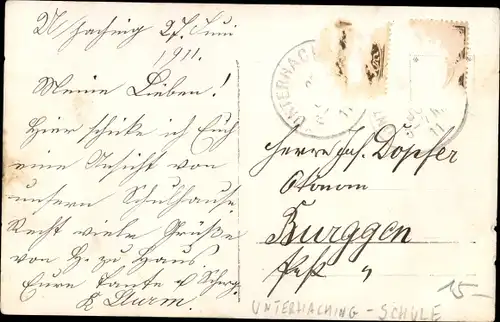 U/haching 27. Juni
1911.
Meine Lieben!
Hier schicke ich Euch
eine Ansicht von
unserm Schulhause.
Recht viele Grüße
von H. zu Haus.
Eure Tante
Sturm.
UNTERHACH
Herrn Joh. Dopfer
Ökonom
Burggen
Post
15-
UNTERHACHING - SCHULE